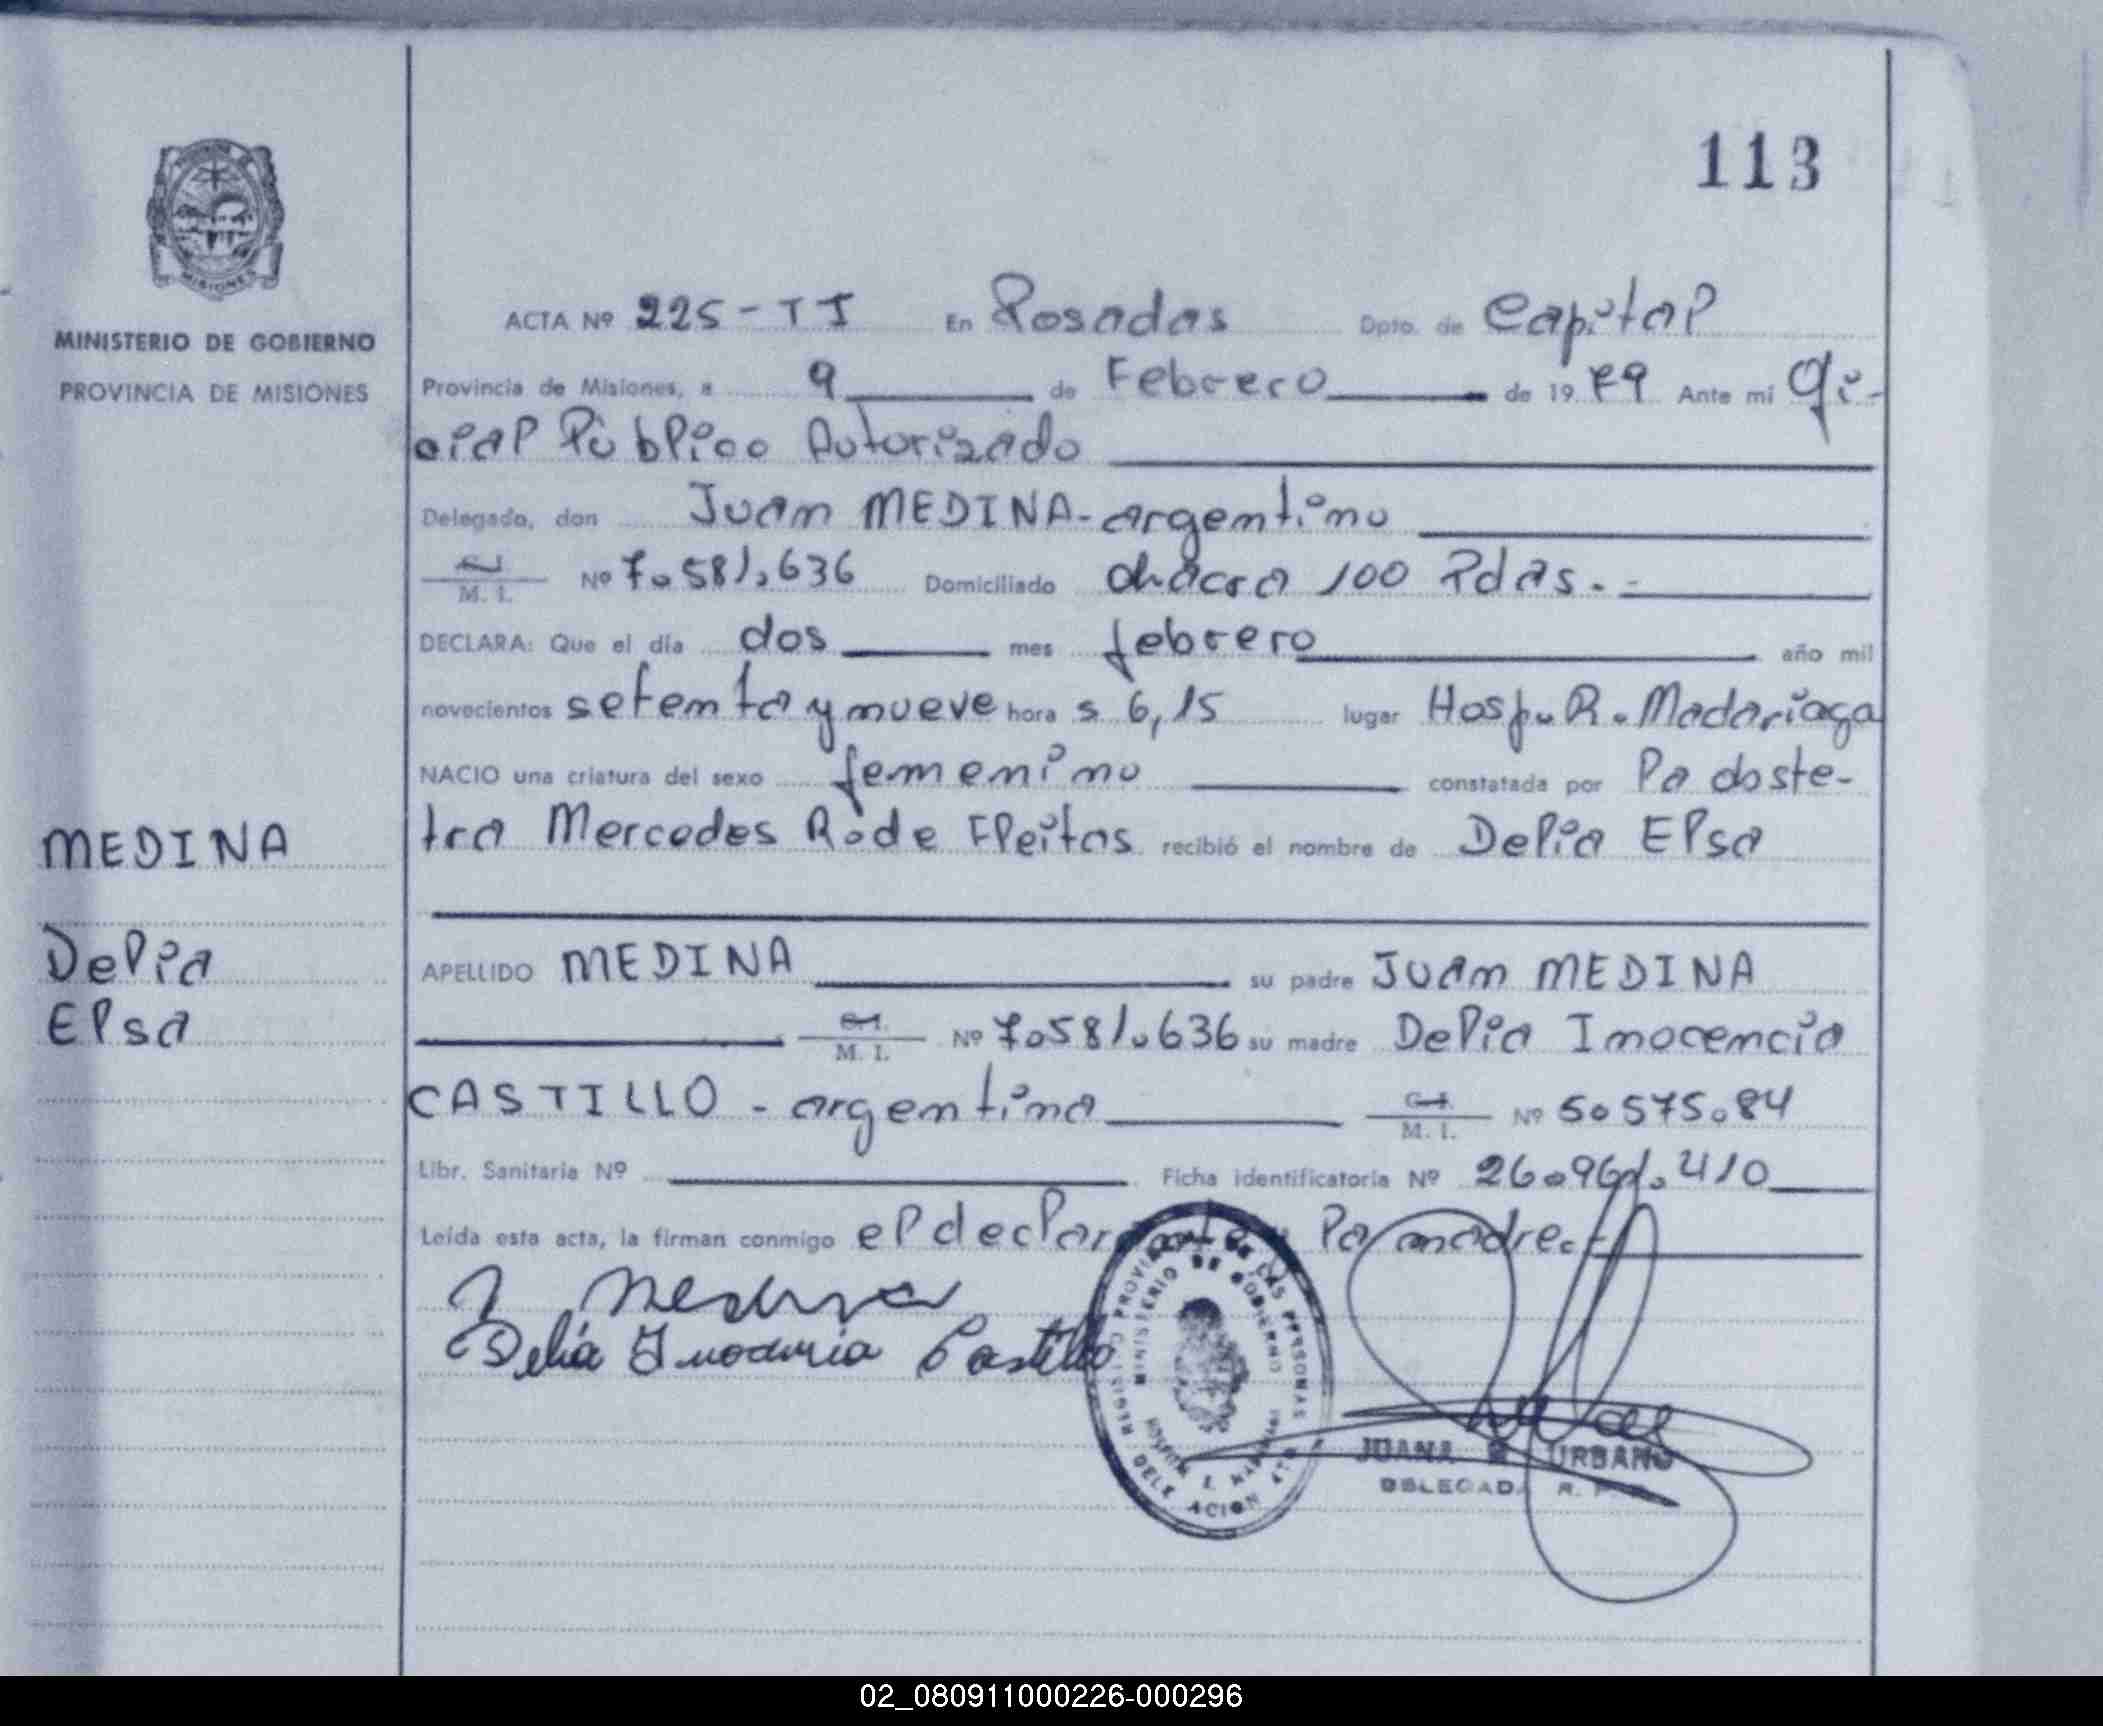 113
MISIONES
MINISTERIO DE GOBIERNO
PROVINCIA DE MISIONES
ACTA Nº 225-TI En Posadas Dpto. de Capital
Provincia de Misiones, a 9 de Febrero de 1979 Ante mi Ofi-
cial Público Autorizado
Delegado, don Juan MEDINA-argentino
M. I. Nº 7.581.636 Domiciliado chacra 100 Pdas.-
DECLARA: Que el día dos mes febrero año mil
novecientos setenta y nueve hora s 6,15 lugar Hosp. R. Madariaga
NACIO una criatura del sexo femenino constatada por la obste-
tra Mercedes R. de Fleitas recibió el nombre de Delia Elsa
MEDINA
Delia
Elsa
APELLIDO MEDINA su padre Juan MEDINA
M. I. Nº 7.581.636 su madre Delia Inocencia
CASTILLO - argentina C.I. M. I. Nº 5.575.84
Libr. Sanitaria Nº Ficha identificatoria Nº 26.961.410
Leída esta acta, la firman conmigo el declarante y la madre.-
J Medina
Delia Inocencia Castillo
REGISTRO PROVINCIAL DE LAS PERSONAS
MINISTERIO DE GOBIERNO
JUANA URBANO
DELEGADA R.
02_080911000226-000296